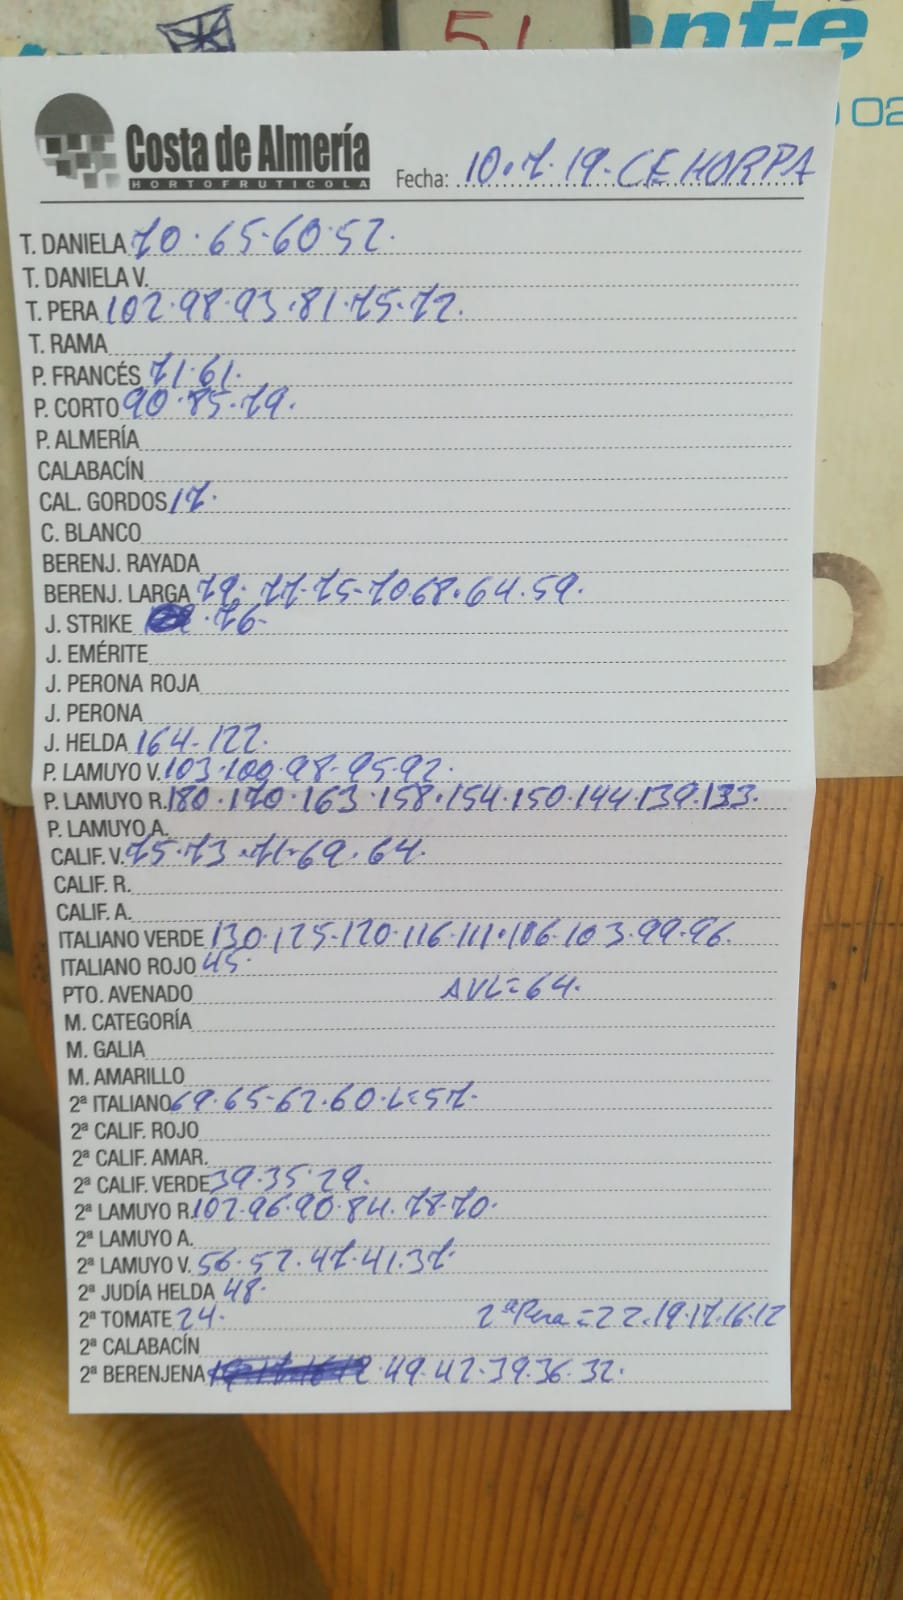 51
nte
02
Costa de Almería
HORTOFRUTICOLA
Fecha: 10.7.19. CEHORPA
T. DANIELA 70.65.60.52.
T. DANIELA V.
T. PERA 102.98.93.81.75.72.
T. RAMA
P. FRANCÉS 71.61.
P. CORTO 90.85.79.
P. ALMERÍA
CALABACÍN
CAL. GORDOS 17.
C. BLANCO
BERENJ. RAYADA
BERENJ. LARGA 79.77.75.70.68.64.59.
J. STRIKE .76.
J. EMÉRITE
J. PERONA ROJA
J. PERONA
J. HELDA 164-122.
P. LAMUYO V. 103.100.98.95.92.
P. LAMUYO R. 180.170.163.158.154.150.144.139.133.
P. LAMUYO A.
CALIF. V. 75.73.71.69.64.
CALIF. R.
CALIF. A.
ITALIANO VERDE 130.125.120.116.111.106.103.99.96.
ITALIANO ROJO 45.
PTO. AVENADO AVL=64.
M. CATEGORÍA
M. GALIA
M. AMARILLO
2ª ITALIANO 69.65.62.60.L=57.
2ª CALIF. ROJO
2ª CALIF. AMAR.
2ª CALIF. VERDE 39.35.29.
2ª LAMUYO R. 102.96.90.84.78.70.
2ª LAMUYO A.
2ª LAMUYO V. 56.52.47.41.37.
2ª JUDÍA HELDA 48.
2ª TOMATE 24. 2ª Pera=22.19.17.16.12
2ª CALABACÍN
2ª BERENJENA .49.42.39.36.32.